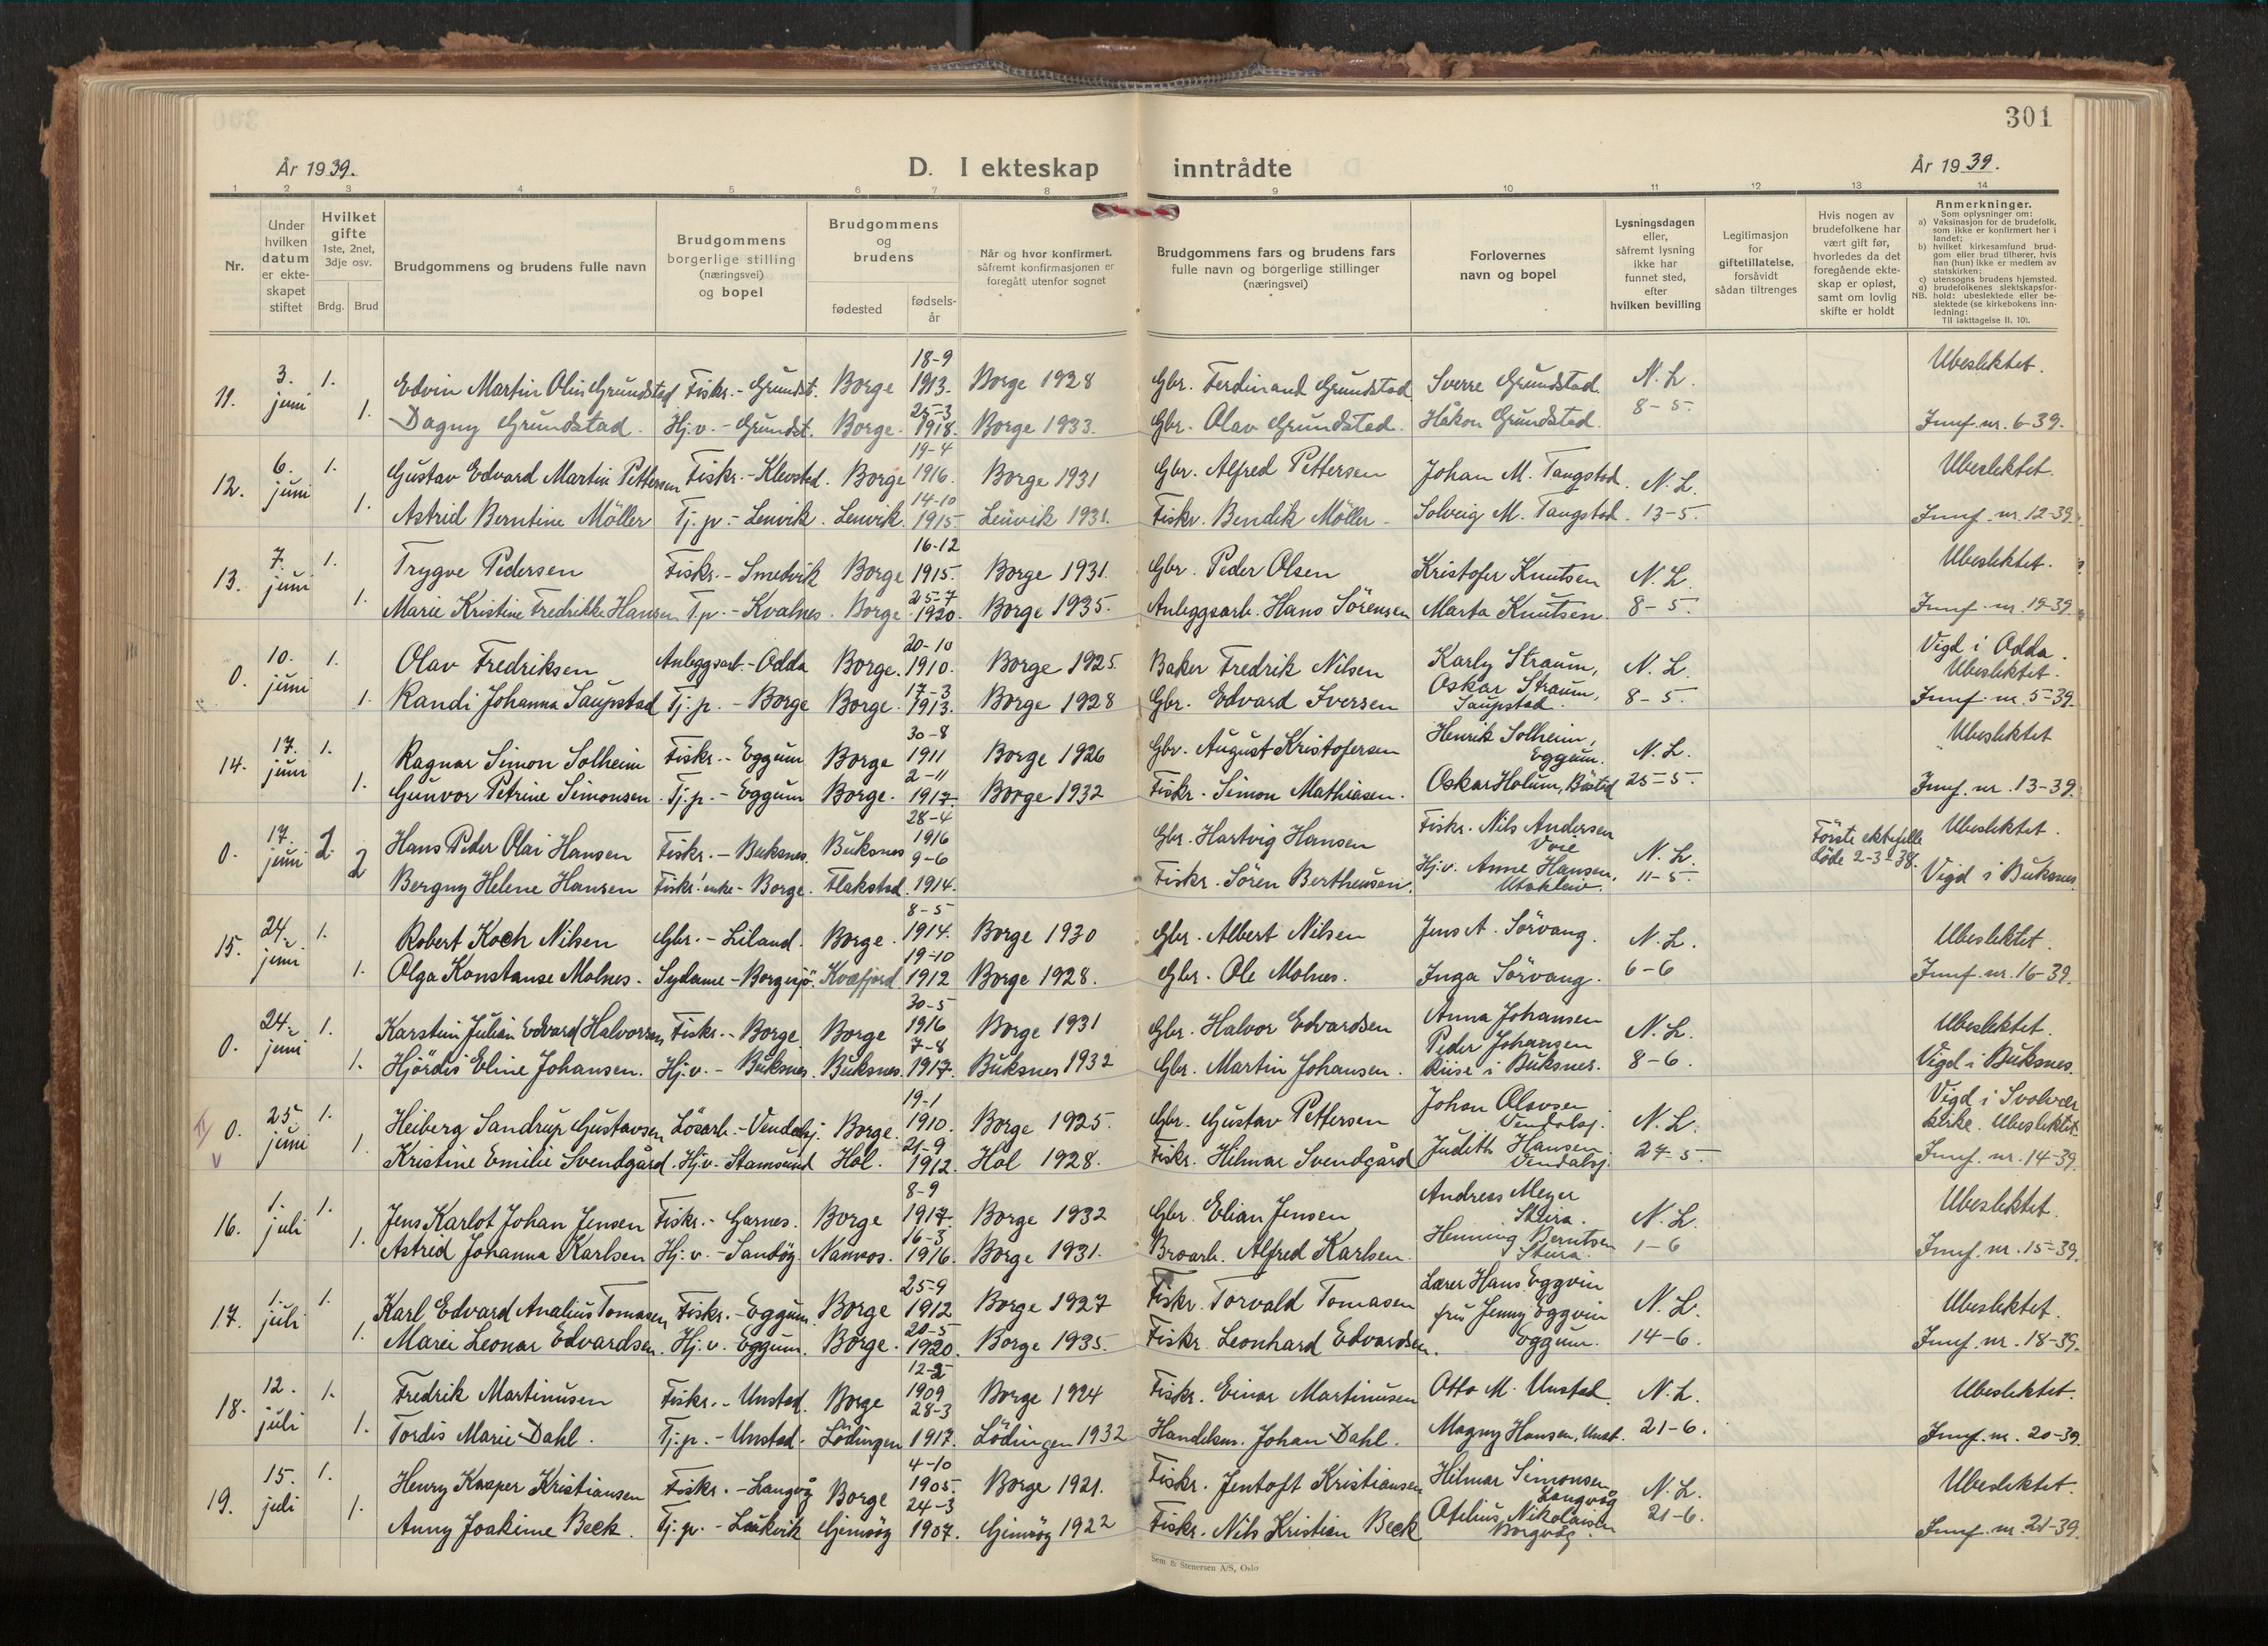 301
År 1939.
D. I ekteskap inntrådte
År 1939.
1 2 3 4 5 6 7 8 9 10 11 12 13 14
Nr.
Under hvilken datum er ekteskapet stiftet
Hvilket gifte 1ste, 2net, 3dje osv.
Brdg. Brud
Brudgommens og brudens fulle navn
Brudgommens borgerlige stilling (næringsvei) og bopel
Brudgommens og brudens
fødested
fødselsår
Når og hvor konfirmert, såfremt konfirmasjonen er foregått utenfor sognet
Brudgommens fars og brudens fars fulle navn og borgerlige stillinger (næringsvei)
Forlovernes navn og bopel
Lysningsdagen eller, såfremt lysning ikke har funnet sted, efter hvilken bevilling
Legitimasjon for giftetillatelse, forsåvidt sådan tiltrenges
Hvis nogen av brudefolkene har vært gift før, hvorledes da det foregående ekteskap er opløst, samt om lovlig skifte er holdt
Anmerkninger.
Som oplysninger om:
a) Vaksinasjon for de brudefolk, som ikke er konfirmert her i landet;
b) hvilket kirkesamfund brudgom eller brud tilhører, hvis han (hun) ikke er medlem av statskirken;
c) utensogns brudens hjemsted.
d) brudefolkenes slektskapsforhold: ubeslektede eller beslektede (se kirkebokens innledning:
NB.
Til iakttagelse II. 10).
11. 3. juni 1. Edvin Martin Olin Grundstad Fiskr. - Grundst. Borge 18-9 1913. Borge 1928 Gbr. Ferdinand Grundstad Sverre Grundstad. N. L. 8-5. Ubeslektet.
1. Dagny Grundstad. Hj.v. - Grundst. Borge. 25-3 1918. Borge 1933. Gbr. Olav Grundstad. Håkon Grundstad. Jmf. nr. 6-39.
12. 6. juni 1. Gustav Edvard Martin Pettersen Fiskr. - Klevstad. Borge 19-4 1916. Borge 1931 Gbr. Alfred Pettersen Johan M. Tangstad. N. L. 13-5. Ubeslektet.
1. Astrid Berntine Möller Tj. p. - Lenvik. Lenvik. 14-10 1915. Lenvik 1931. Fiskr. Bendik Möller. Solveig M. Tangstad. Jmf. nr. 12-39.
13. 7. juni 1. Trygve Pedersen Fiskr. - Smedvik Borge 16-12 1915. Borge 1931. Gbr. Peder Olsen Kristofer Knutsen N. L. 8-5. Ubeslektet.
1. Marie Kristine Fredrikke Hansen T.p. - Kvalnes. Borge 25-7 1920. Borge 1935. Anleggsarb. Hans Sörensen Marta Knutsen. Jmf. nr. 19-39.
0. 10. juni 1. Olav Fredriksen Anleggsarb. - Odda Borge. 20-10 1910. Borge 1925. Baker Fredrik Nilsen Karly Straum, N. L. 8-5. Vigd i Odda. Ubeslektet.
1. Randi Johanna Saupstad Tj. p. - Borge Borge. 17-3 1913. Borge 1928 Gbr. Edvard Iversen Oskar Straum, Saupstad. Jmf. nr. 5-39.
14. 17. juni 1. Ragnar Simon Solheim Fiskr. - Eggum Borge 30-8 1911 Borge 1926 Gbr. August Kristofersen Henrik Solheim, Eggum. N. L. 25-5. Ubeslektet
1. Gunvor Petrine Simonsen. Tj. p. - Eggum Borge. 2-11 1917. Borge 1932 Fiskr. Simon Mathiasen. Oskar Holum, Böstad Jmf. nr. 13-39.
0. 17. juni 2 Hans Peder Olai Hansen Fiskr. - Buksnes. Buksnes 28-4 1916 Gbr. Hartvig Hansen Fiskr. Nils Andersen N. L. 11-5. Förste ektefelle döde 2-3-38. Ubeslektet.
2 Bergny Helene Hansen Fiskr. enke - Borge. Flakstad. 9-6 1914. Fiskr. Sören Bertheusen. Hj.v. Anne Hansen, Vigd i Buksnes
15. 24. juni 1. Robert Koch Nilsen Gbr. - Liland. Borge. 8-5 1914. Borge 1930 Gbr. Albert Nilsen Jens A. Sörvang. N. L. 6-6 Ubeslektet.
1. Olga Konstanse Molnes. Sydame - Borgesjö. Kvæfjord 19-10 1912 Borge 1928. Gbr. Ole Molnes. Inga Sörvang. Jmf. nr. 16-39.
0. 24. juni 1. Karstein Julian Edvard Halvorsen Fiskr. - Borge Borge 30-5 1916 Borge 1931 Gbr. Halvor Edvardsen Anna Johansen N. L. 8-6. Ubeslektet.
1. Hjördis Eline Johansen. Hj.v. - Buksnes. Buksnes. 7-8 1917. Buksnes 1932 Gbr. Martin Johansen. Peder Johansen Riise i Buksnes. Vigd i Buksnes.
0. 25. juni 1. Heiberg Sandrup Gustavsen Lösarb. - Vendalsj. Borge. 19-1 1910. Borge 1925. Gbr. Gustav Pettersen Johan Olavsen Vendalsj. N. L. 24-5. Vigd i Svolvær kirke. Ubeslektet.
1. Kristine Emilie Svendgård. Hj.v. Stamsund Hol. 21-9 1912. Hol 1928. Fiskr. Hilmar Svendgård Judith Hansen Vendalsj. Jmf. nr. 14-39.
16. 1. juli 1. Jens Karlot Johan Jensen Fiskr. - Garnes. Borge 8-9 1917. Borge 1932 Gbr. Elian Jensen Andreas Meyer Steira. N. L. 1-6 Ubeslektet.
1. Astrid Johanna Karlsen Hj.v. - Sandöy. Namsos. 16-3 1916. Borge 1931. Broarb. Alfred Karlsen. Henning Berntsen Steira. Jmf. nr. 15-39.
17. 1. juli 1. Karl Edvard Analius Tomasen Fiskr. - Eggum. Borge 25-9 1912 Borge 1927 Fiskr. Torvald Tomasen Lærer Hans Eggvin N. L. 14-6. Ubeslektet.
1. Marei Leonar Edvardsen. Hj.v. Eggum. Borge. 20-5 1920. Borge 1935. Fiskr. Leonhard Edvardsen. fru Jenny Eggvin Eggum. Jmf. nr. 18-39.
18. 12. juli 1. Fredrik Martinusen Fiskr. - Unstad. Borge 12-2 1909 Borge 1924 Fiskr. Einar Martinusen Otto M. Unstad N. L. 21-6. Ubeslektet.
1. Tordis Marie Dahl. Tj. p. - Unstad. Lödingen 28-3 1917. Lödingen 1932 Handelsm. Johan Dahl. Magny Hansen, Unst. Jmf. nr. 20-39.
19. 15. juli 1. Henry Kasper Kristiansen Fiskr. - Langvåg Borge 4-10 1905. Borge 1921. Fiskr. Jentoft Kristiansen Hilmar Simonsen Langvåg N. L. 21-6. Ubeslektet.
1. Anny Joakime Beck. Tj. p. - Laukvik Gimsöy 24-3 1907. Gimsöy 1922 Fiskr. Nils Kristian Beck Otelius Nikolaisen Borgvåg. Jmf. nr. 21-39.
Sem & Stenersen A/S, Oslo